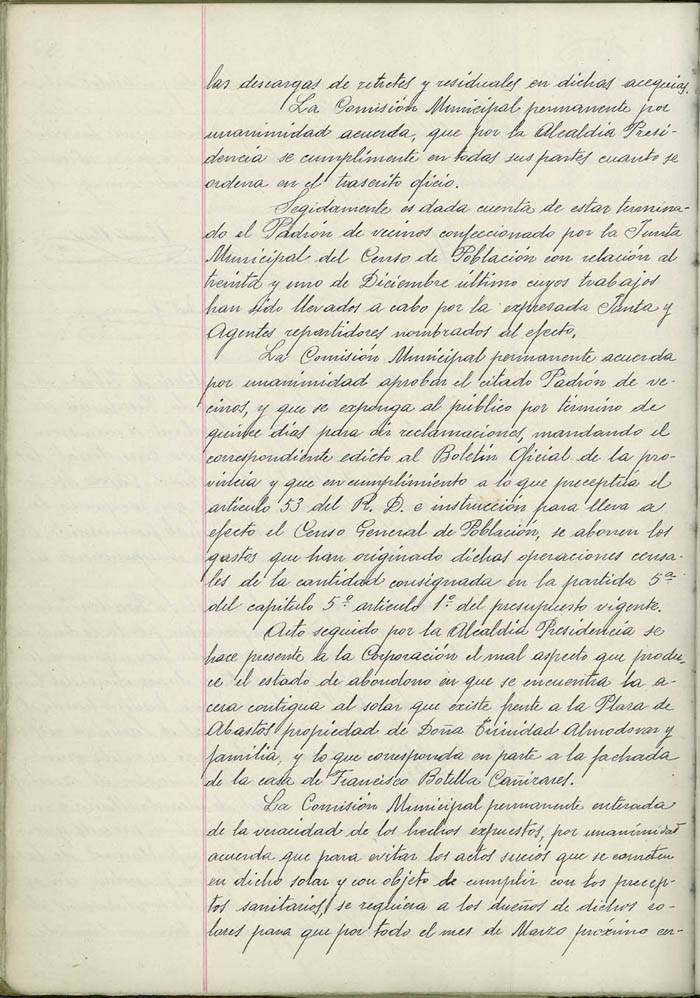 las descargas de retretes y residuales en dichas acequias.
La Comisión Municipal permanente por
unanimidad acuerda, que por la Alcaldia Presi-
dencia se cumplimente en todas sus partes cuanto se
ordena en el trascrito oficio.
Segidamente es dada cuenta de estar termina-
do el Padrón de vecinos confeccionado por la Junta
Municipal del Censo de Población con relación al
treinta y uno de Diciembre último cuyos trabajos
han sido llevados a cabo por la expresada Junta y
Agentes repartidores nombrados al efecto.
La Comisión Municipal permanente acuerda
por unanimidad aprobar el citado Padrón de ve-
cinos, y que se exponga al público por término de
quince dias para oir reclamaciones, mandando el
correspondiente edicto al Boletin Oficial de la pro-
vincia y que en cumplimiento a lo que preceptúa el
articulo 53 del R. D. e instrucción para lleva a
efecto el Censo General de Población, se abonen los
gastos que han originado dichas operaciones censa-
les de la cantidad consignada en la partida 5ª
del capitulo 5º articulo 1º del presupuesto vigente.
Acto seguido por la Alcaldia Presidencia se
hace presente a la Corporación el mal aspecto que produ-
ce el estado de abandono en que se encuentra la a-
cera contigua al solar que existe frente a la Plaza de
Abastos propiedad de Doña Trinidad Almodovar y
familia, y lo que corresponda en parte a la fachada
de la casa de Francisco Botella Canizares.
La Comisión Municipal permanente enterada
de la veracidad de los hechos expuestos, por unanimidad
acuerda que para evitar los actos sucios que se cometen
en dicho solar y con objeto de cumplir con los precep-
tos sanitarios, se requiera a los dueños de dichos so-
lares para que por todo el mes de Marzo próximo cer-